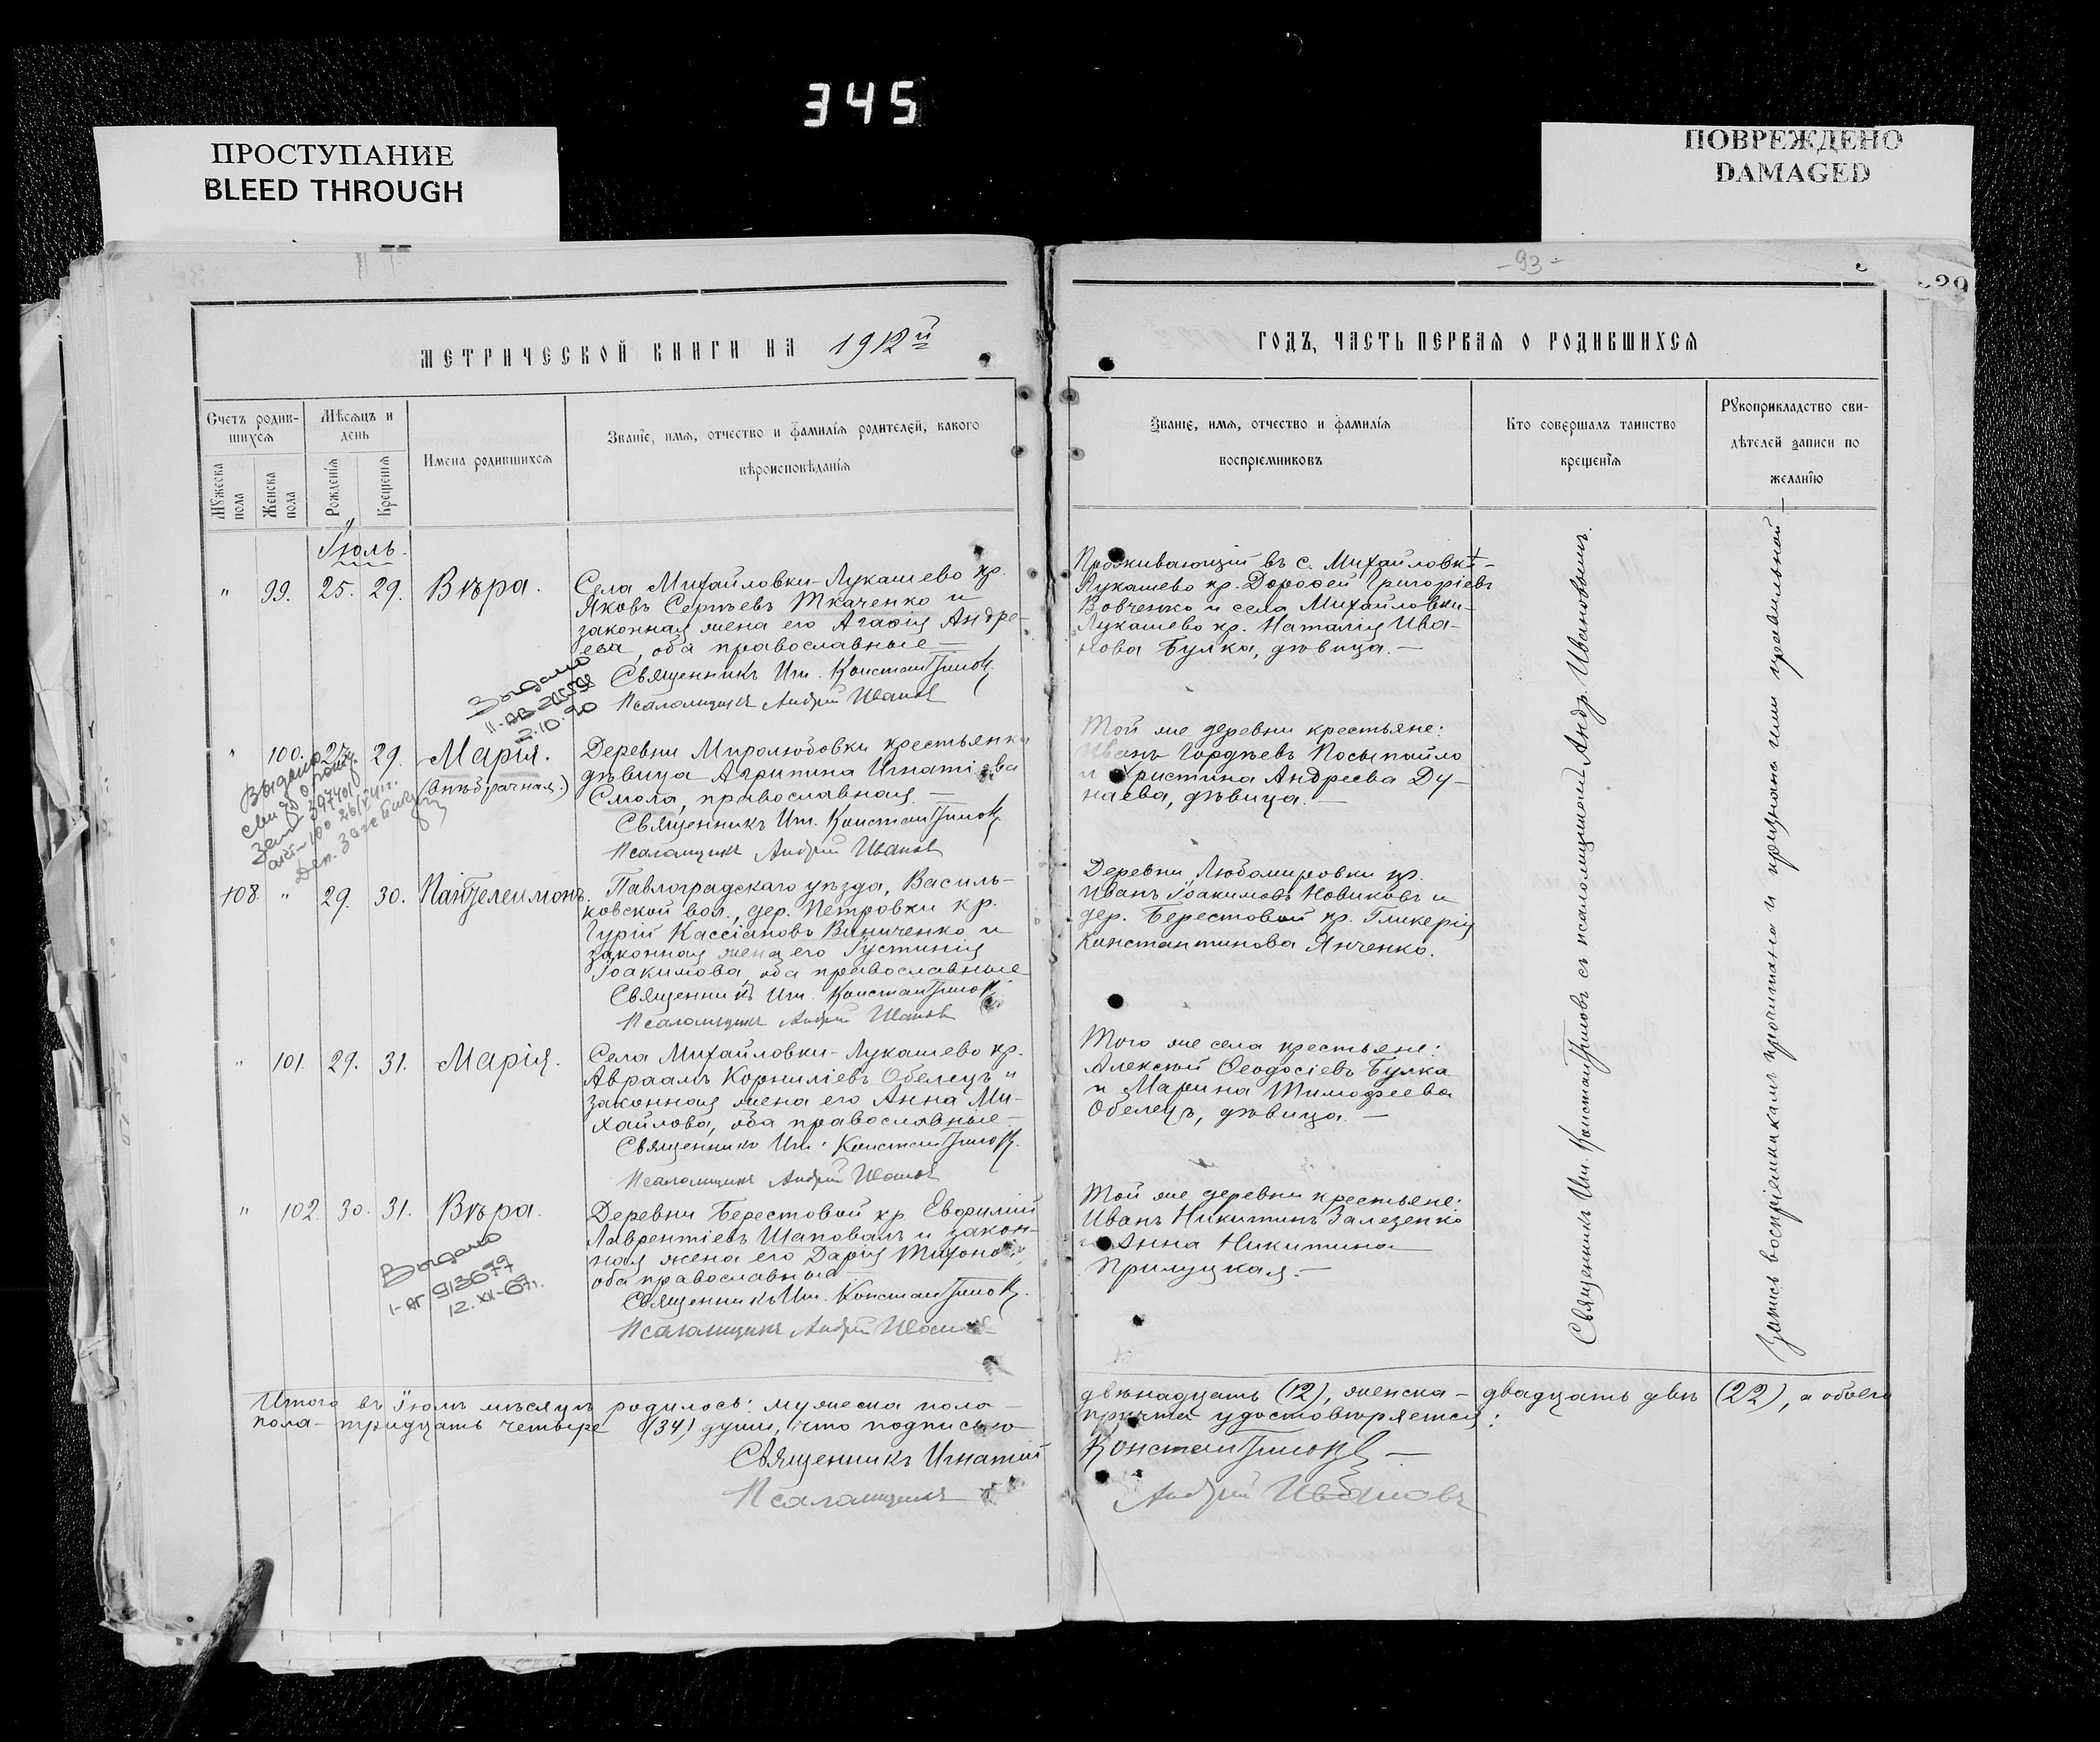 345
ПРОСТУПАНИЕ
BLEED THROUGH
ПОВРЕЖДЕНО
DAMAGED
-93-
МЕТРИЧЕСКОЙ КНИГИ НА 1912й
Счетъ родив-
шихся
Мѣсяцъ и
день
Мужеска
пола
Женска
пола
Рожденія
Крещенія
Имена родившихся
Званіе, имя, отчество и фамилія родителей, какого
вѣроисповѣданія
Іюль.
" 99. 25. 29. Вѣра.
Села Михайловки-Лукашево кр.
Яковъ Сергѣевъ Ткаченко и
законная жена его Агафія Андре-
ева, оба православные —
Священникъ Иг. Константиновъ
Псаломщикъ Андрей Ивановъ
Выдано
2.10.90
" 100. 27. 29. Марія.
(внѣбрачная.)
Деревни Миролюбовки крестьянка
дѣвица Агрипина Игнатіева
Смола, православная. —
Священникъ Иг. Константиновъ
Псаломщикъ Андрей Ивановъ
Выдано
108. " 29. 30. Пантелеимонъ.
Павлоградскаго уѣзда, Василь-
ковской вол., дер. Петровки кр.
Гурій Кассіановъ Виниченко и
законная жена его Іустинія
Іоакимова, оба православные
Священникъ Иг. Константиновъ
Псаломщикъ Андрей Ивановъ
" 101. 29. 31. Марія.
Села Михайловки-Лукашево кр.
Авраамъ Корниліевъ Обелецъ и
законная жена его Анна Ми-
хайлова, оба православные —
Священникъ Иг. Константиновъ
Псаломщикъ Андрей Ивановъ
" 102. 30. 31. Вѣра.
Деревни Берестовой кр. Евфимій
Лаврентіевъ Шаповалъ и закон-
ная жена его Дарія
оба православные
Священникъ Иг. Константиновъ
Псаломщикъ Андрей Ивановъ
Выдано
I-АГ 913677
12.XII-67г.
Итого въ Іюлѣ мѣсяцѣ родилось: мужеска пола
пола - тридцать четыре (34) души, что подписью
Священникъ Игнатій
Псаломщикъ
ГОДЪ, ЧАСТЬ ПЕРВАЯ О РОДИВШИХСЯ
Званіе, имя, отчество и фамилія
воспріемниковъ
Кто совершалъ таинство
крещенія
Рукоприкладство сви-
дѣтелей записи по
желанію
Проживающій въ с. Михайловкѣ-
Лукашево кр. Дорофей Григоріевъ
Вовченко и села Михайловки-
Лукашево кр. Наталія Ива-
нова Булка, дѣвица. —
Той же деревни крестьяне:
Иванъ Гордѣевъ Посыпайло
и Христина Андреева Ду-
наева, дѣвица. —
Деревни Любомировки кр.
Иванъ Іоакимовъ Новиковъ и
дер. Берестовой кр. Гликерія
Константинова Янченко.
Того же села крестьяне:
Алексѣй Ѳеодосіевъ Булка
и Марина Тимофеева
Обелецъ, дѣвица. —
Той же деревни крестьяне:
Иванъ Никитинъ Залезенко
и Анна Никитина
Прилуцкая. —
Священникъ Иг. Константиновъ съ псаломщикомъ Андр. Ивановымъ.
Запись воспріемникамъ прочитана и признана ими правильной —
двѣнадцать (12), женска - двадцать двѣ (22), а обоего
причта удостовѣряется:
Константиновъ —
Андрей Ивановъ